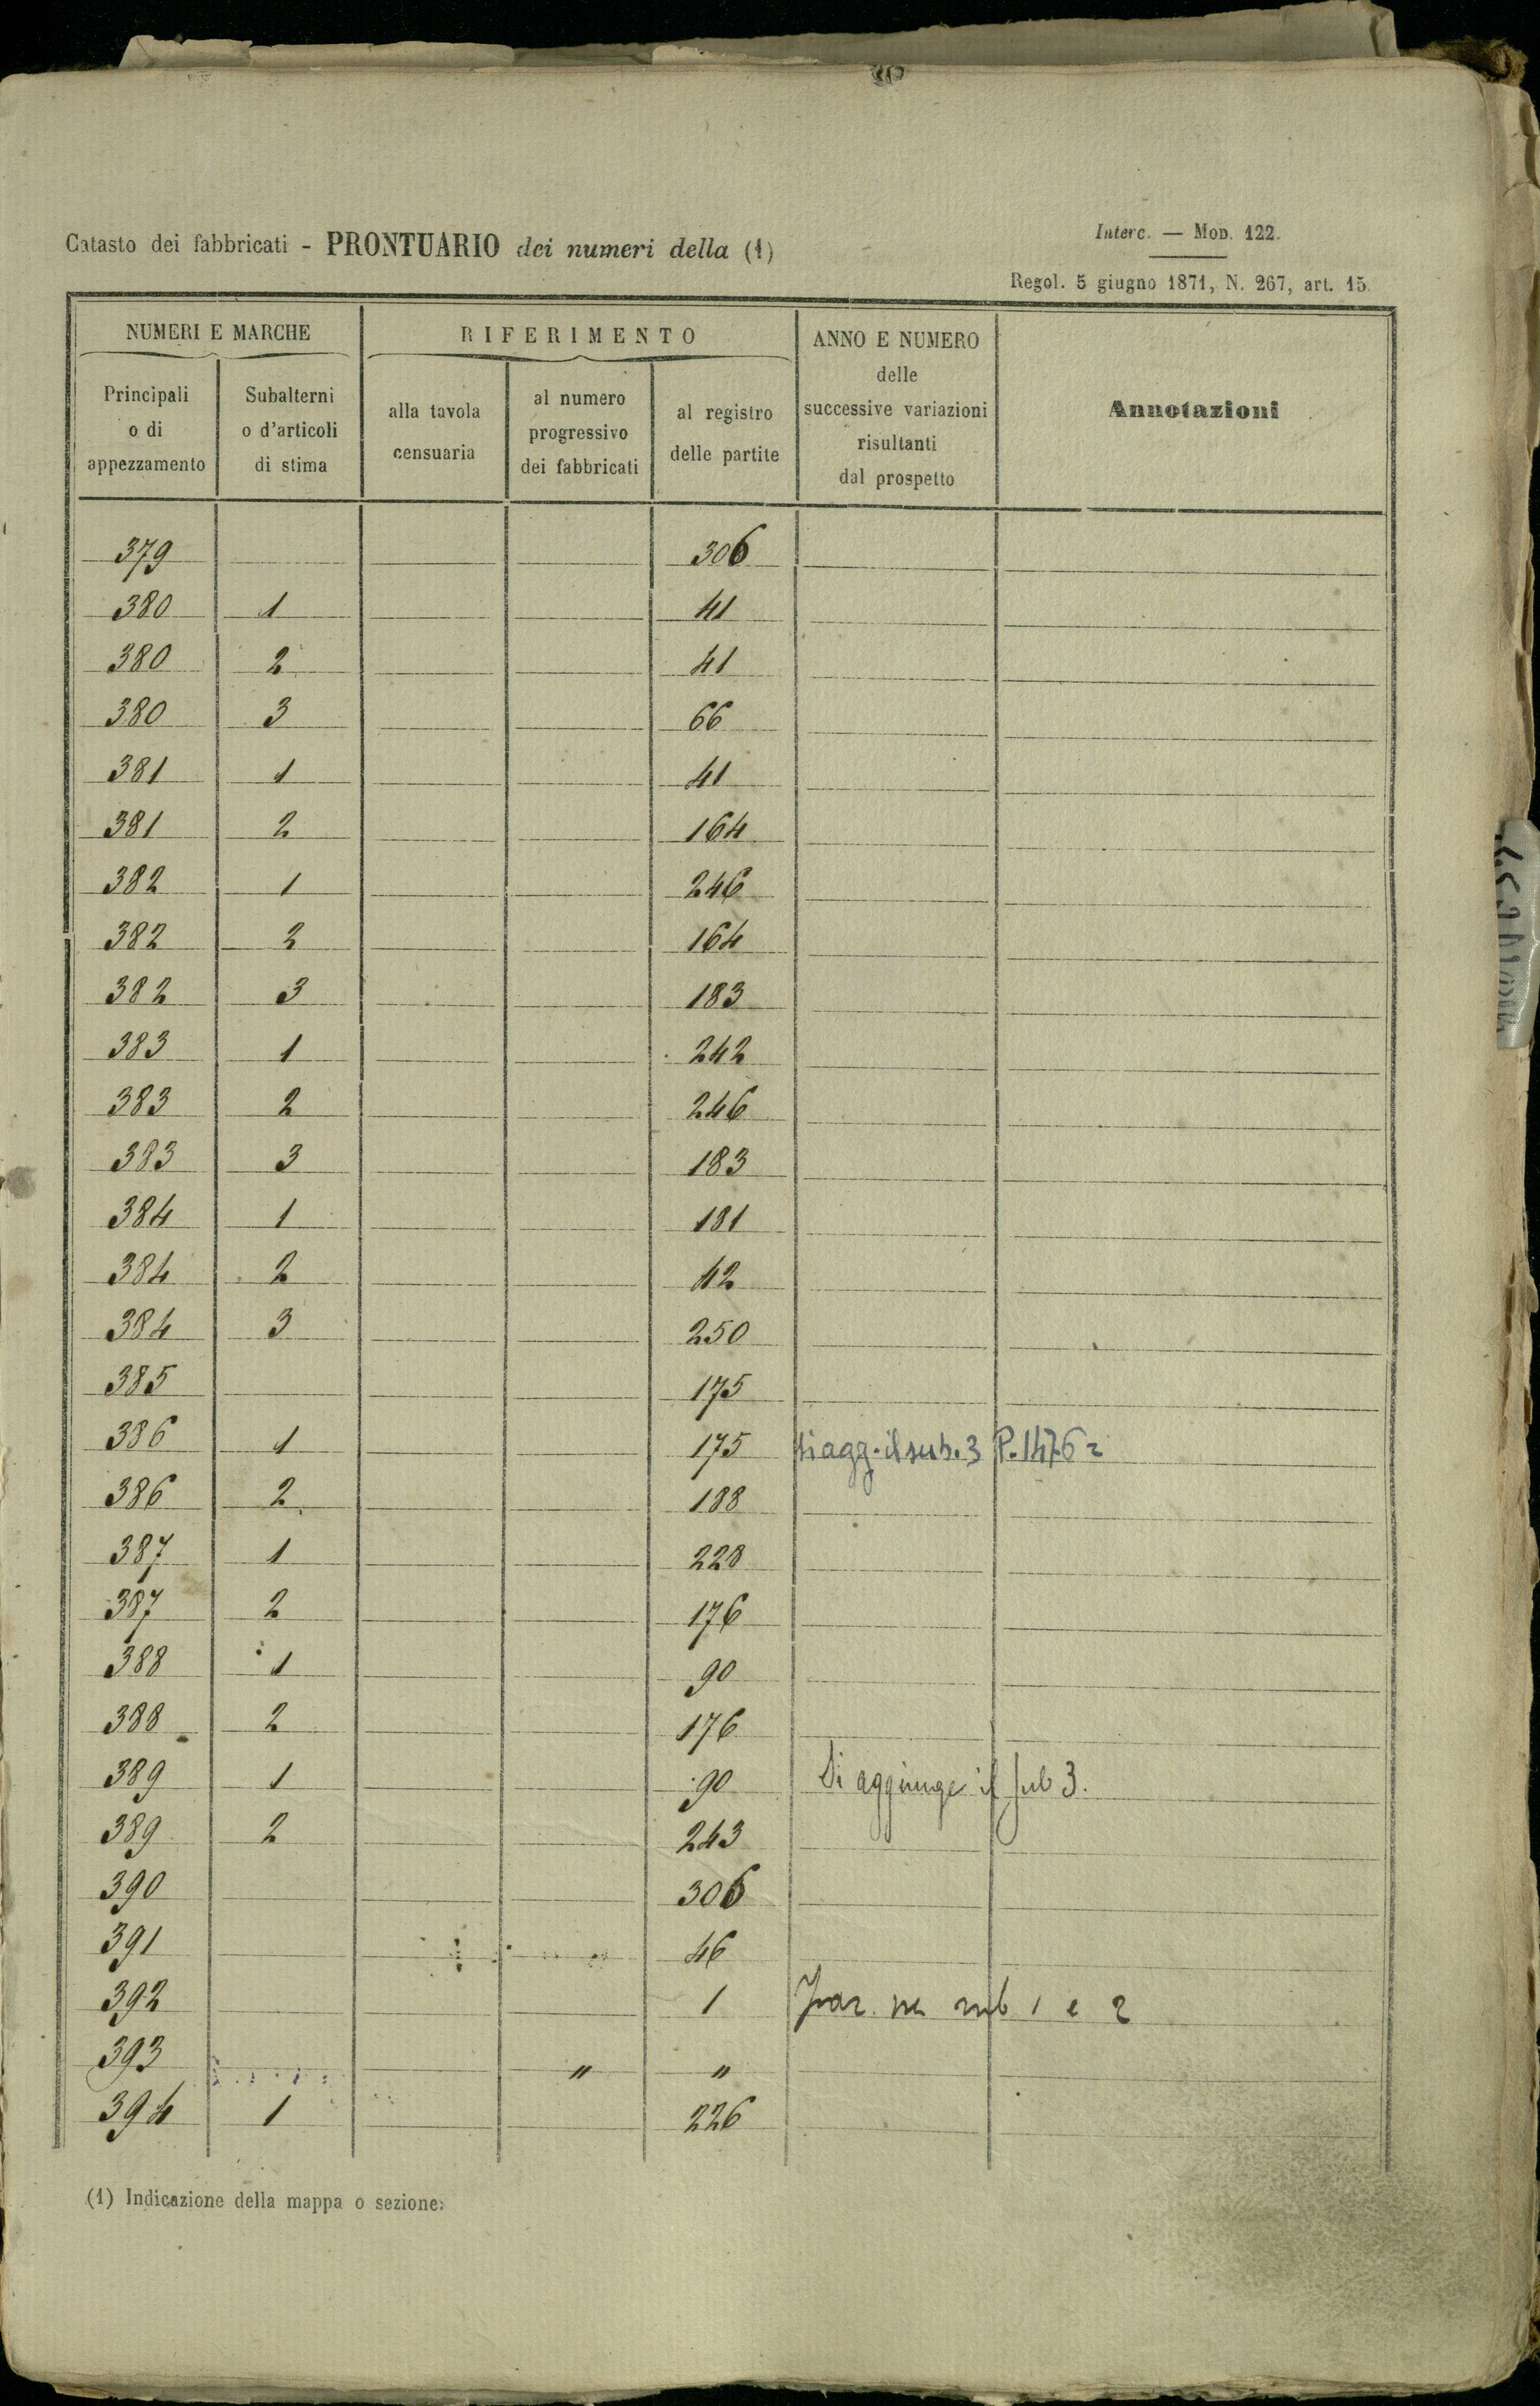 Catasto dei fabbricati - PRONTUARIO dei numeri della (1)
Interc. — Mod. 122.
Regol. 5 giugno 1871, N. 267, art. 15.
NUMERI E MARCHE RIFERIMENTO ANNO E NUMERO delle successive variazioni risultanti dal prospetto Annotazioni
Principali o di appezzamento Subalterni o d'articoli di stima alla tavola censuaria al numero progressivo dei fabbricati al registro delle partite
379 306
380 1 41
380 2 41
380 3 66
381 1 41
381 2 164
382 1 246
382 2 164
382 3 183
383 1 242
383 2 246
383 3 183
384 1 181
384 2 42
384 3 250
385 175
386 1 175 si agg. il sub. 3 P. 1476
386 2 188
387 1 228
387 2 176
388 1 90
388 2 176
389 1 90 Si aggiunge il sub 3.
389 2 243
390 306
391 46
392 1 sub 1 e 2
393 " "
394 1 226
(1) Indicazione della mappa o sezione.